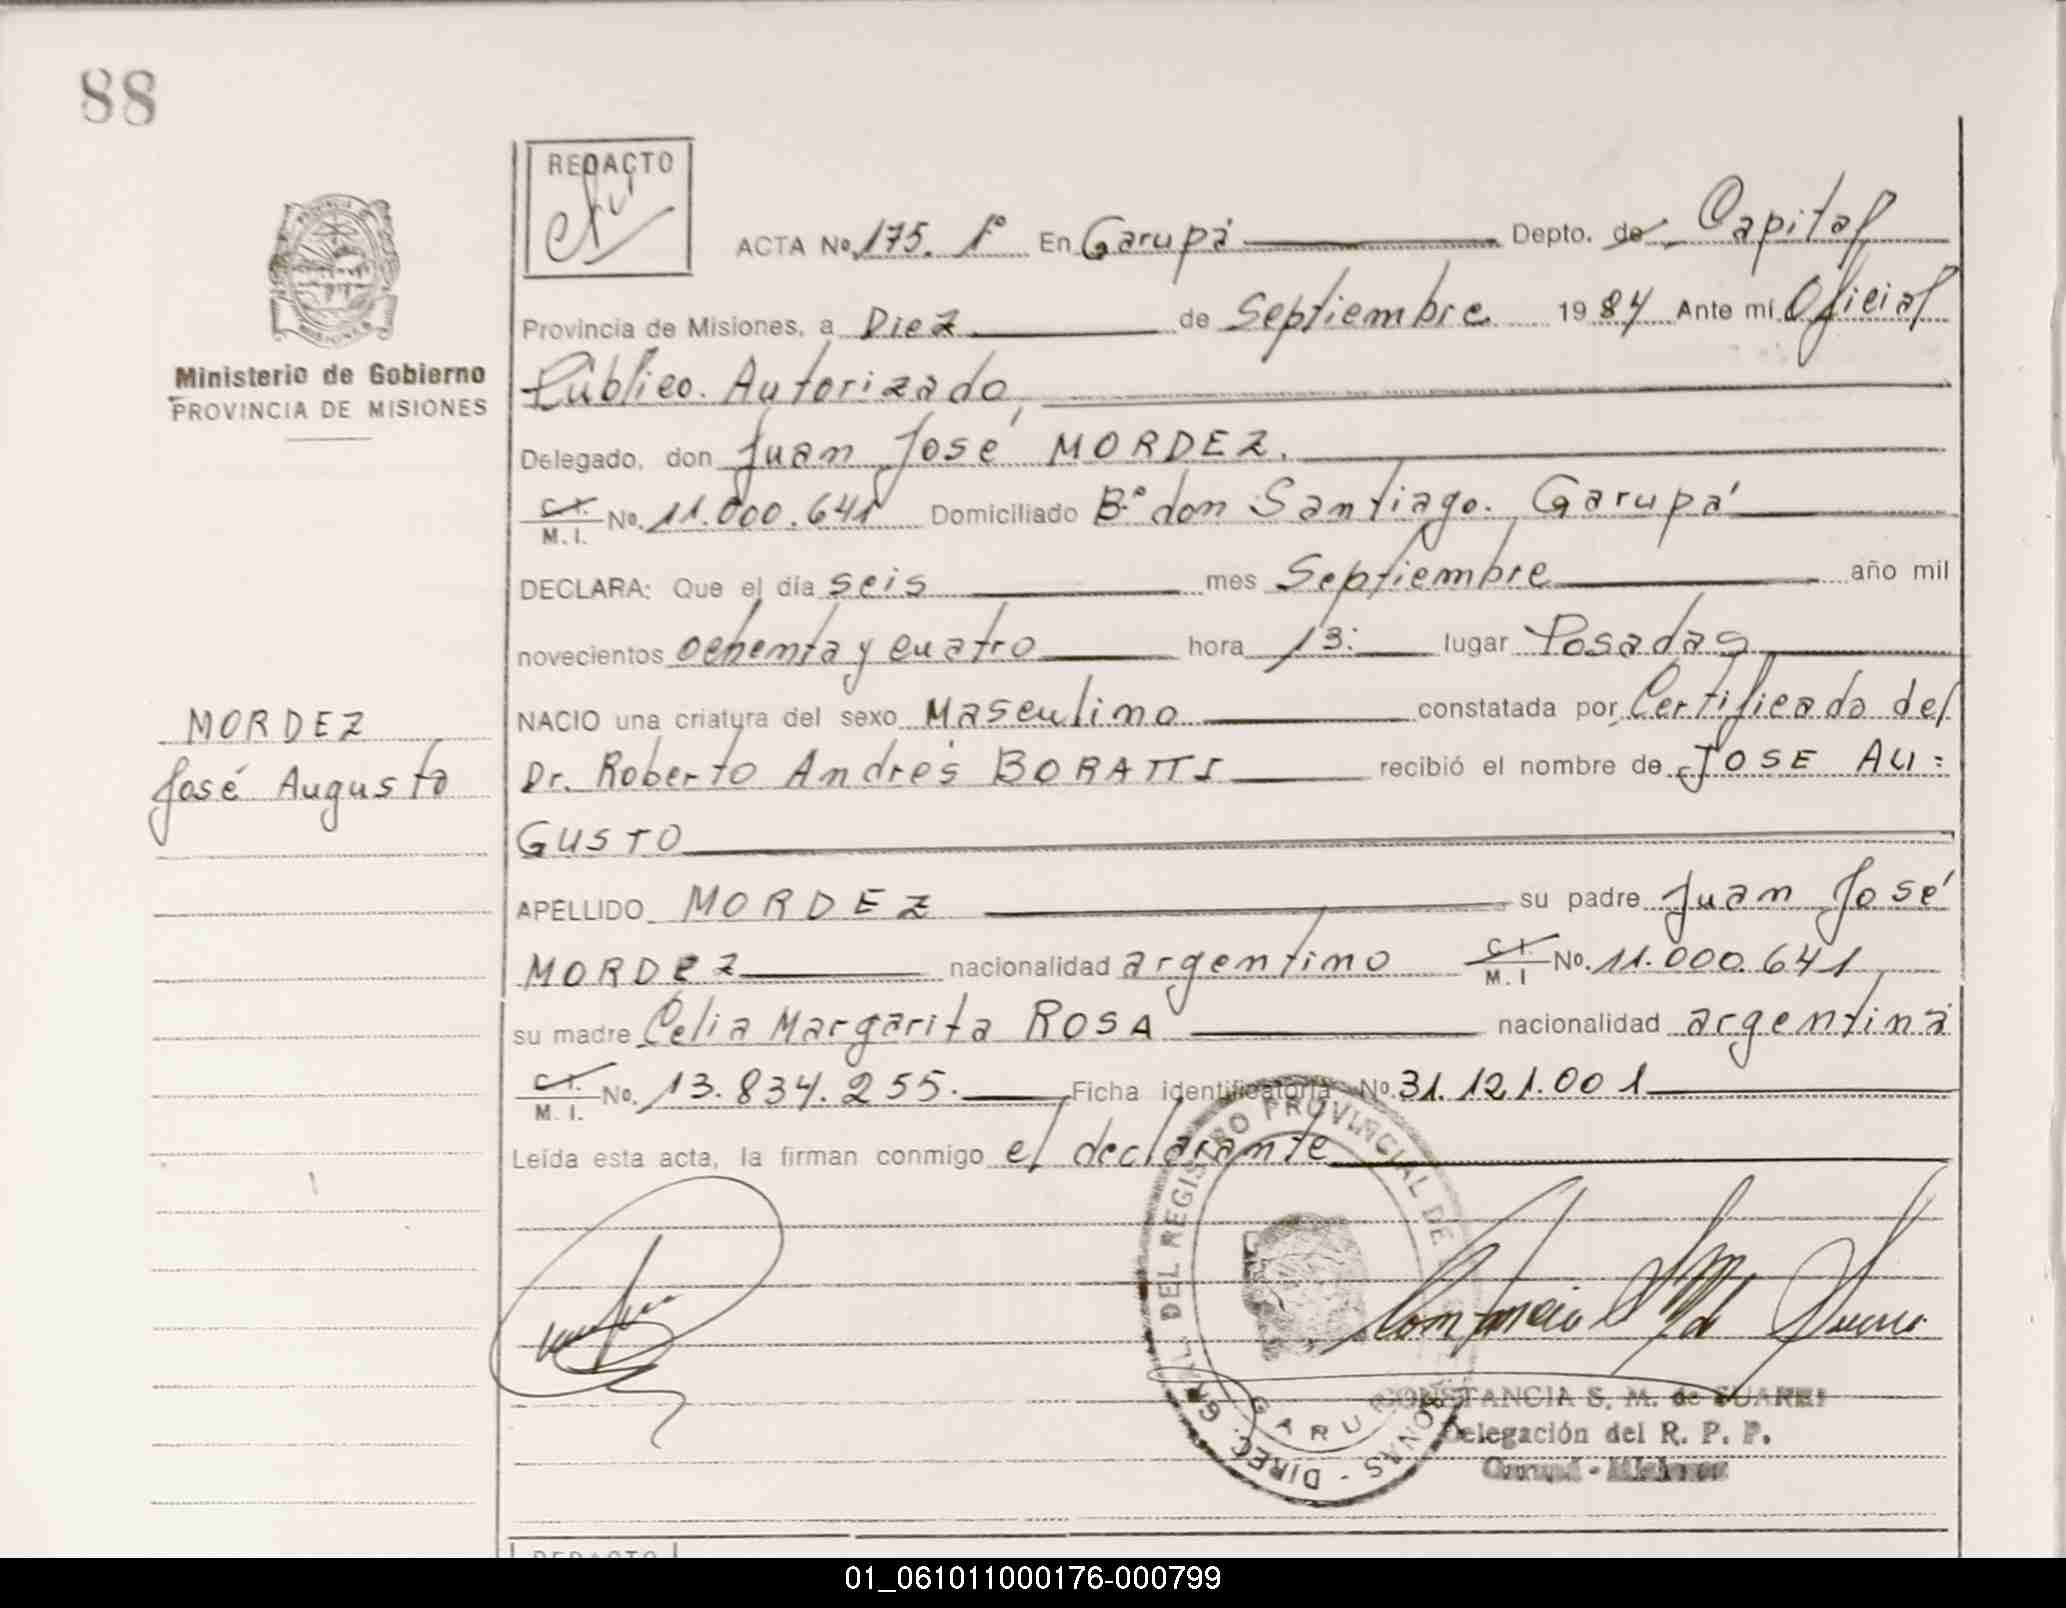 88
REDACTO
ACTA No. 175. 1º En Garupá Depto. de Capital
Provincia de Misiones, a Diez de Septiembre 1984 Ante mí Oficial
Público. Autorizado,
Delegado, don Juan José MORDEZ.
C. I. / M. I. No. 11.000.641 Domiciliado Bº don Santiago. Garupá
DECLARA: Que el día seis mes Septiembre año mil
novecientos ochenta y cuatro hora 13: lugar Posadas
NACIO una criatura del sexo Masculino constatada por Certificado del
Dr. Roberto Andrés BORATTI recibió el nombre de JOSE AU=
GUSTO
APELLIDO MORDEZ su padre Juan José
MORDEZ nacionalidad argentino C. I. / M. I No. 11.000.641
su madre Celia Margarita ROSA nacionalidad argentina
C. I. / M. I. No. 13.834.255. Ficha identificatoria No. 31.121.001
Leída esta acta, la firman conmigo el declarante
Ministerio de Gobierno
PROVINCIA DE MISIONES
MORDEZ
José Augusto
DIREC. GRAL. DEL REGISTRO PROVINCIAL DE LAS PERSONAS
GARUPA
CONSTANCIA S. M. de SUAREZ
Delegación del R. P. P.
Garupá - Misiones
REDACTO
01_061011000176-000799